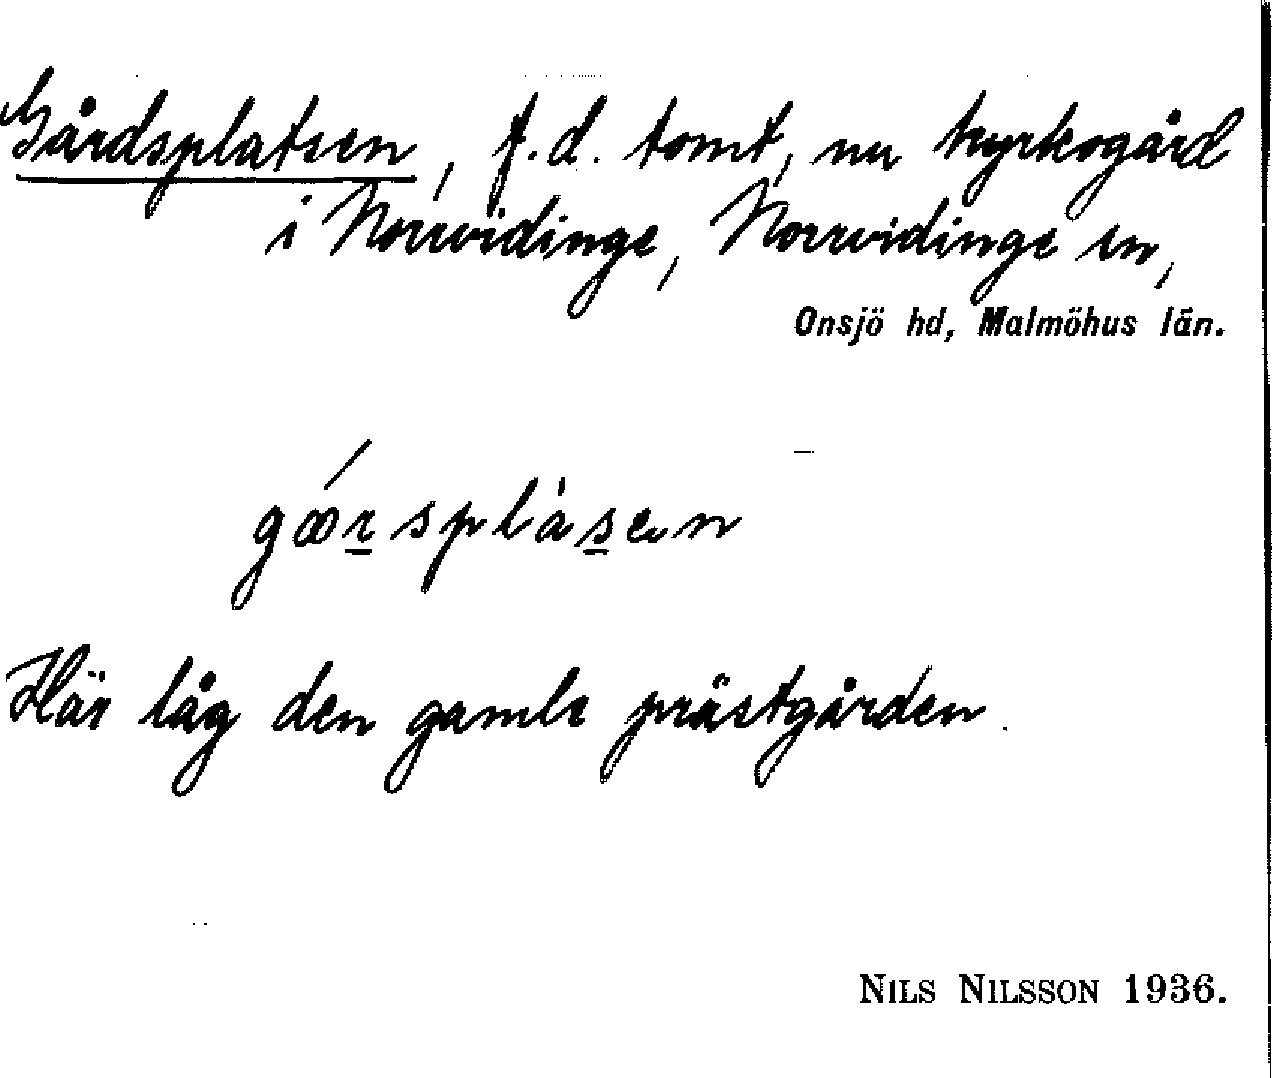 Gårdsplatsen, f.d. tomt, nu kyrkogård
i Norrvidinge, Norrvidinge sn,
Onsjö hd, Malmöhus län.
Här låg den gamle prästgården.
NILS NILSSON 1936.